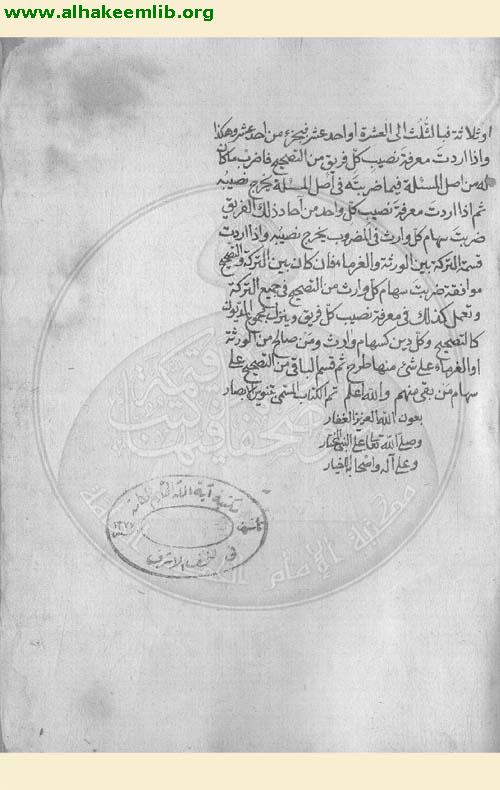 www.alhakeemlib.org
او ثلاثة فبالثلث الى العشرة او احد عشر فبجزء من احد عشر وهكذا
واذا اردت معرفة نصيب كل فريق من التصحيح فاضرب ما كان
له من اصل المسئلة فيما ضربته في اصل المسئلة يخرج نصيبه
ثم اذا اردت معرفة نصيب كل واحد من آحاد ذلك الفريق
ضربت سهام كل وارث في المضروب يخرج نصيبه واذا اردت
قسمة التركة بين الورثة والغرماء فان كان بين التركة والتصحيح
موافقة ضربت سهام كل وارث من التصحيح في جميع التركة
وتعمل كذلك في معرفة نصيب كل فريق وينزل مجموع الديون
كالتصحيح وكل دين كسهام وارث ومن صالح من الورثة
او الغرماء على شئ منها طرح ثم قسم الباقي من التصحيح على
سهام من بقى منهم والله اعلم تم الكتاب المسمى بتنوير الابصار
بعون الله العزيز الغفار
وصلى الله تعالى على النبي المختار
وعلى آله واصحابه الاخيار
مكتبة آية الله الحكيم العامة
تأسيس ١٣٧٧
في النجف الاشرف